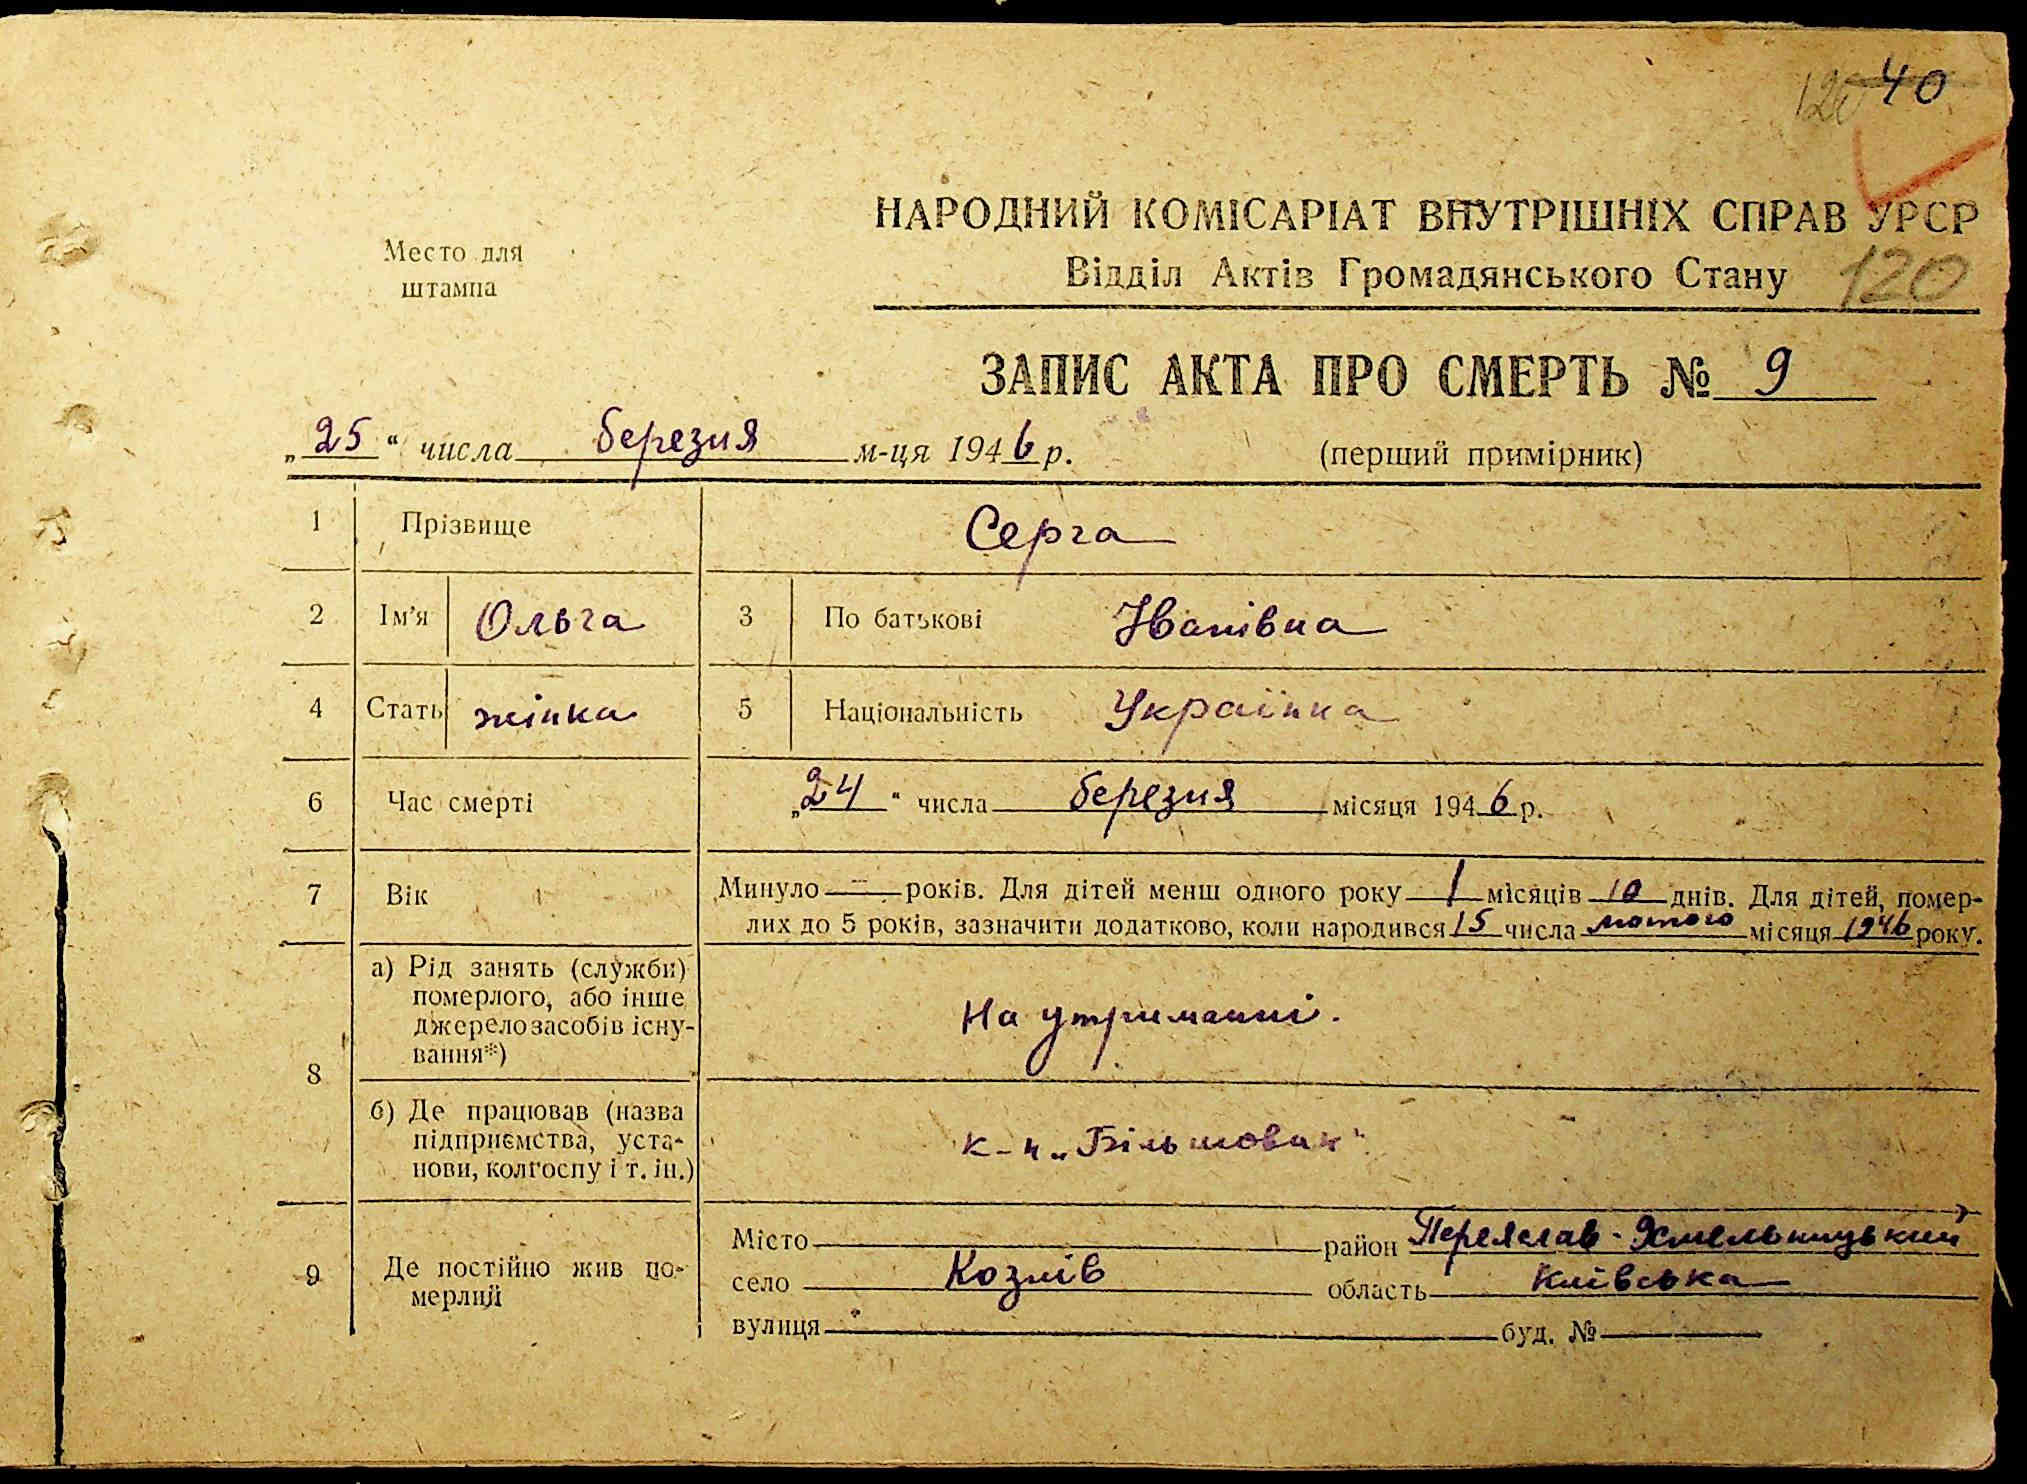 120 40
НАРОДНИЙ КОМІСАРІАТ ВНУТРІШНІХ СПРАВ УРСР
Место для
штампа
Відділ Актів Громадянського Стану 120
ЗАПИС АКТА ПРО СМЕРТЬ № 9
„25“ числа березня м-ця 1946 р.
(перший примірник)
1 Прізвище Серга
2 Ім'я Ольга 3 По батькові Іванівна
4 Стать жінка 5 Національність Українка
6 Час смерті „24“ числа березня місяця 1946 р.
7 Вік Минуло — років. Для дітей менш одного року 1 місяців 10 днів. Для дітей, помер-
лих до 5 років, зазначити додатково, коли народився 15 числа лютого місяця 1946 року.
8 а) Рід занять (служби)
померлого, або інше
джерело засобів існу-
вання*)
На утриманні.
б) Де працював (назва
підприємства, уста-
нови, колгоспу і т. ін.)
к-п „Більшовик“
9 Де постійно жив по-
мерлий
Місто район Переяслав-Хмельницький
село Козлів область Київська
вулиця буд. №